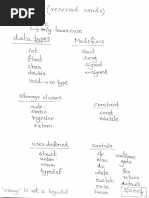 (reserved words)
→ only lowercase
data types
Modifiers
int
float
char
double
void → no type
short
long
signed
unsigned
Storage classes
auto
static
register
extern
constant
const
volatile
user defined
struct
union
enum
typedef
controls
if
else
do
while
switch
case
break
continue
goto
for
return
default
is not a keyword